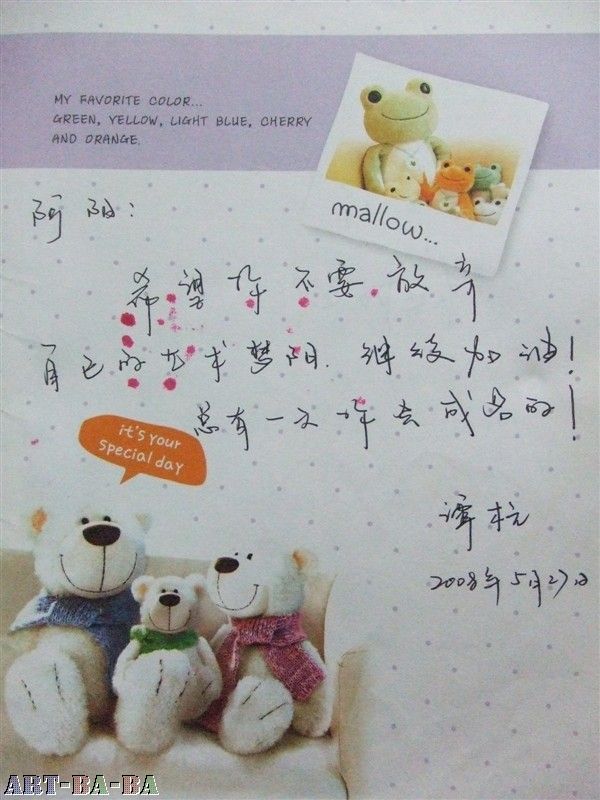 MY FAVORITE COLOR...
GREEN, YELLOW, LIGHT BLUE, CHERRY
AND ORANGE.
mallow...
阿阳:
希望你不要放弃
自己的艺术梦阳.继续加油!
总有一天你会成名的!
it's your
special day
谭
2008年5月27日
ART-BA-BA